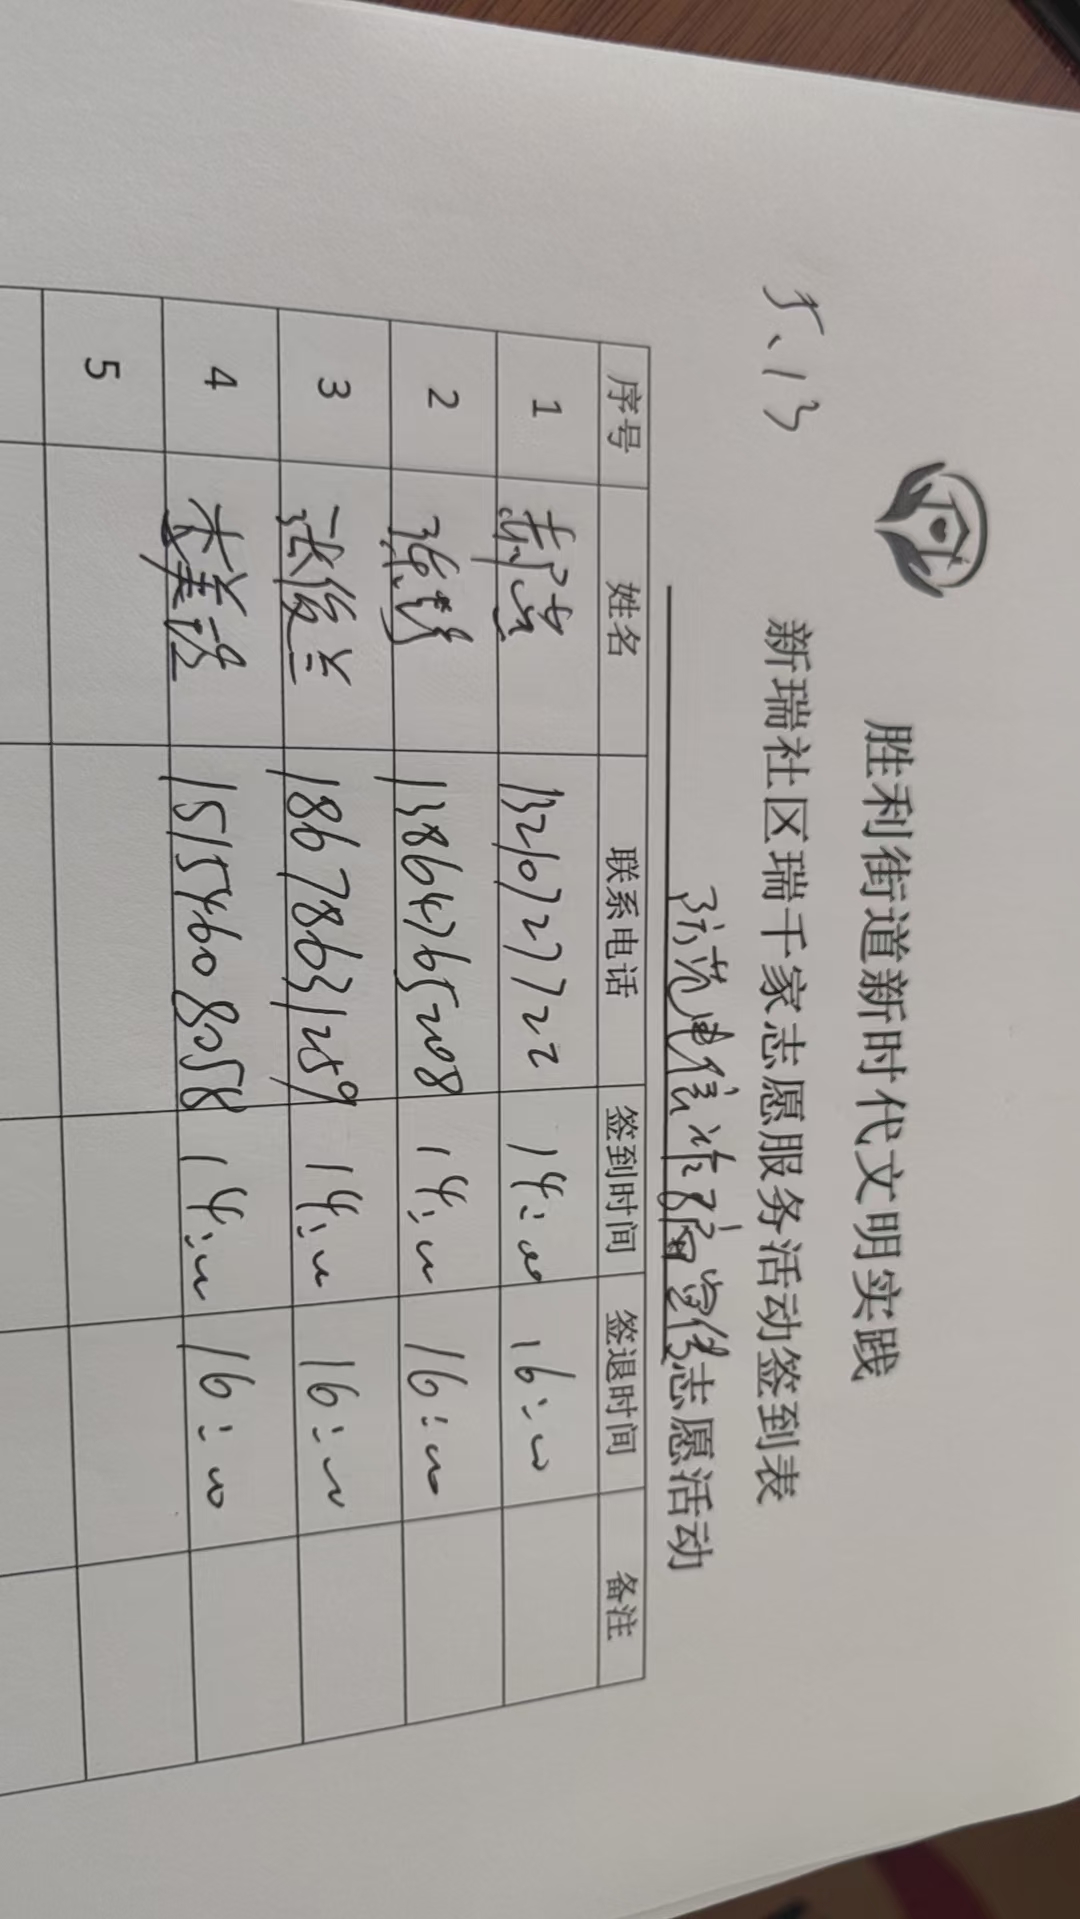 5、13
胜利街道新时代文明实践
新瑞社区瑞千家志愿服务活动签到表
防范电信诈骗宣传志愿活动
序号 姓名 联系电话 签到时间 签退时间 备注
1 13210727722 14:00 16:00
2 张 13864765208 14:00 16:00
3 张俊兰 18678631259 14:00 16:00
4 14:00 16:00
5